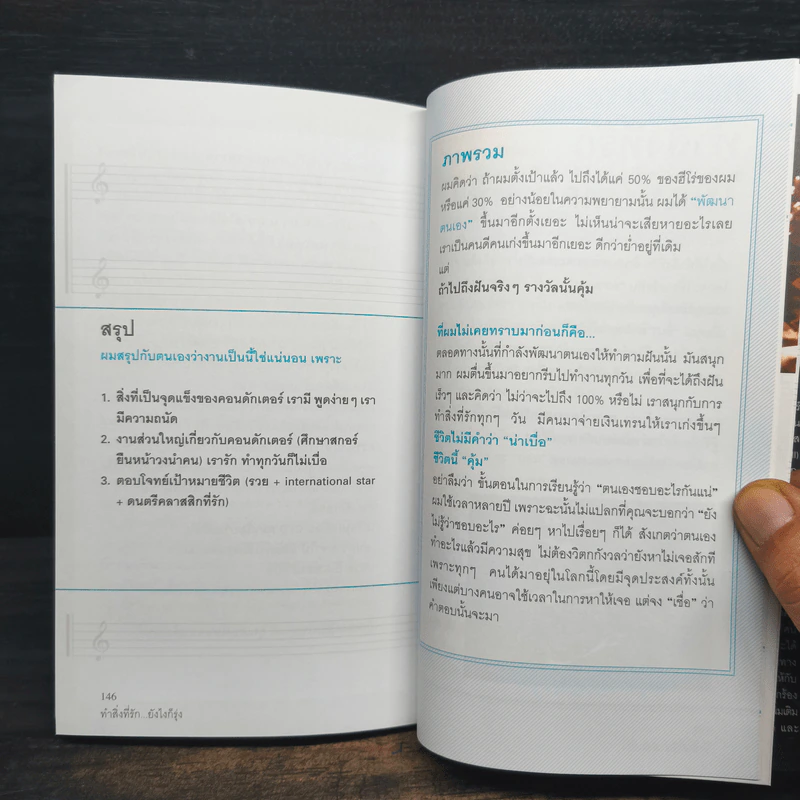 สรุป
ผมสรุปกับตนเองว่างานเป็นนี้ใช่แน่นอน เพราะ
1. สิ่งที่เป็นจุดแข็งของคอนดักเตอร์ เรามี พูดง่ายๆ เรา
มีความถนัด
2. งานส่วนใหญ่เกี่ยวกับคอนดักเตอร์ (ศึกษาสกอร์
ยืนหน้าวงนำคน) เรารัก ทำทุกวันก็ไม่เบื่อ
3. ตอบโจทย์เป้าหมายชีวิต (รวย + international star
+ ดนตรีคลาสสิกที่รัก)
146
ทำสิ่งที่รัก...ยังไงก็รุ่ง
ภาพรวม
ผมคิดว่า ถ้าผมตั้งเป้าแล้ว ไปถึงได้แค่ 50% ของฮีโร่ของผม
หรือแค่ 30% อย่างน้อยในความพยายามนั้น ผมได้ “พัฒนา
ตนเอง” ขึ้นมาอีกตั้งเยอะ ไม่เห็นน่าจะเสียหายอะไรเลย
เราเป็นคนดีคนเก่งขึ้นมาอีกเยอะ ดีกว่าย่ำอยู่ที่เดิม
แต่
ถ้าไปถึงฝันจริงๆ รางวัลนั้นคุ้ม
ที่ผมไม่เคยทราบมาก่อนก็คือ...
ตลอดทางนั้นที่กำลังพัฒนาตนเองให้ทำตามฝันนั้น มันสนุก
มาก ผมตื่นขึ้นมาอยากรีบไปทำงานทุกวัน เพื่อที่จะได้ถึงฝัน
เร็วๆ และคิดว่า ไม่ว่าจะไปถึง 100% หรือไม่ เราสนุกกับการ
ทำสิ่งที่รักทุกๆ วัน มีคนมาจ่ายเงินเทรนให้เราเก่งขึ้นๆ
ชีวิตไม่มีคำว่า “น่าเบื่อ”
ชีวิตนี้ “คุ้ม”
อย่าลืมว่า ขั้นตอนในการเรียนรู้ว่า “ตนเองชอบอะไรกันแน่”
ผมใช้เวลาหลายปี เพราะฉะนั้นไม่แปลกที่คุณจะบอกว่า “ยัง
ไม่รู้ว่าชอบอะไร” ค่อยๆ หาไปเรื่อยๆ ก็ได้ สังเกตว่าตนเอง
ทำอะไรแล้วมีความสุข ไม่ต้องวิตกกังวลว่ายังหาไม่เจอสักที
เพราะทุกๆ คนได้มาอยู่ในโลกนี้โดยมีจุดประสงค์ทั้งนั้น
เพียงแต่บางคนอาจใช้เวลาในการหาให้เจอ แต่จง “เชื่อ” ว่า
คำตอบนั้นจะมา